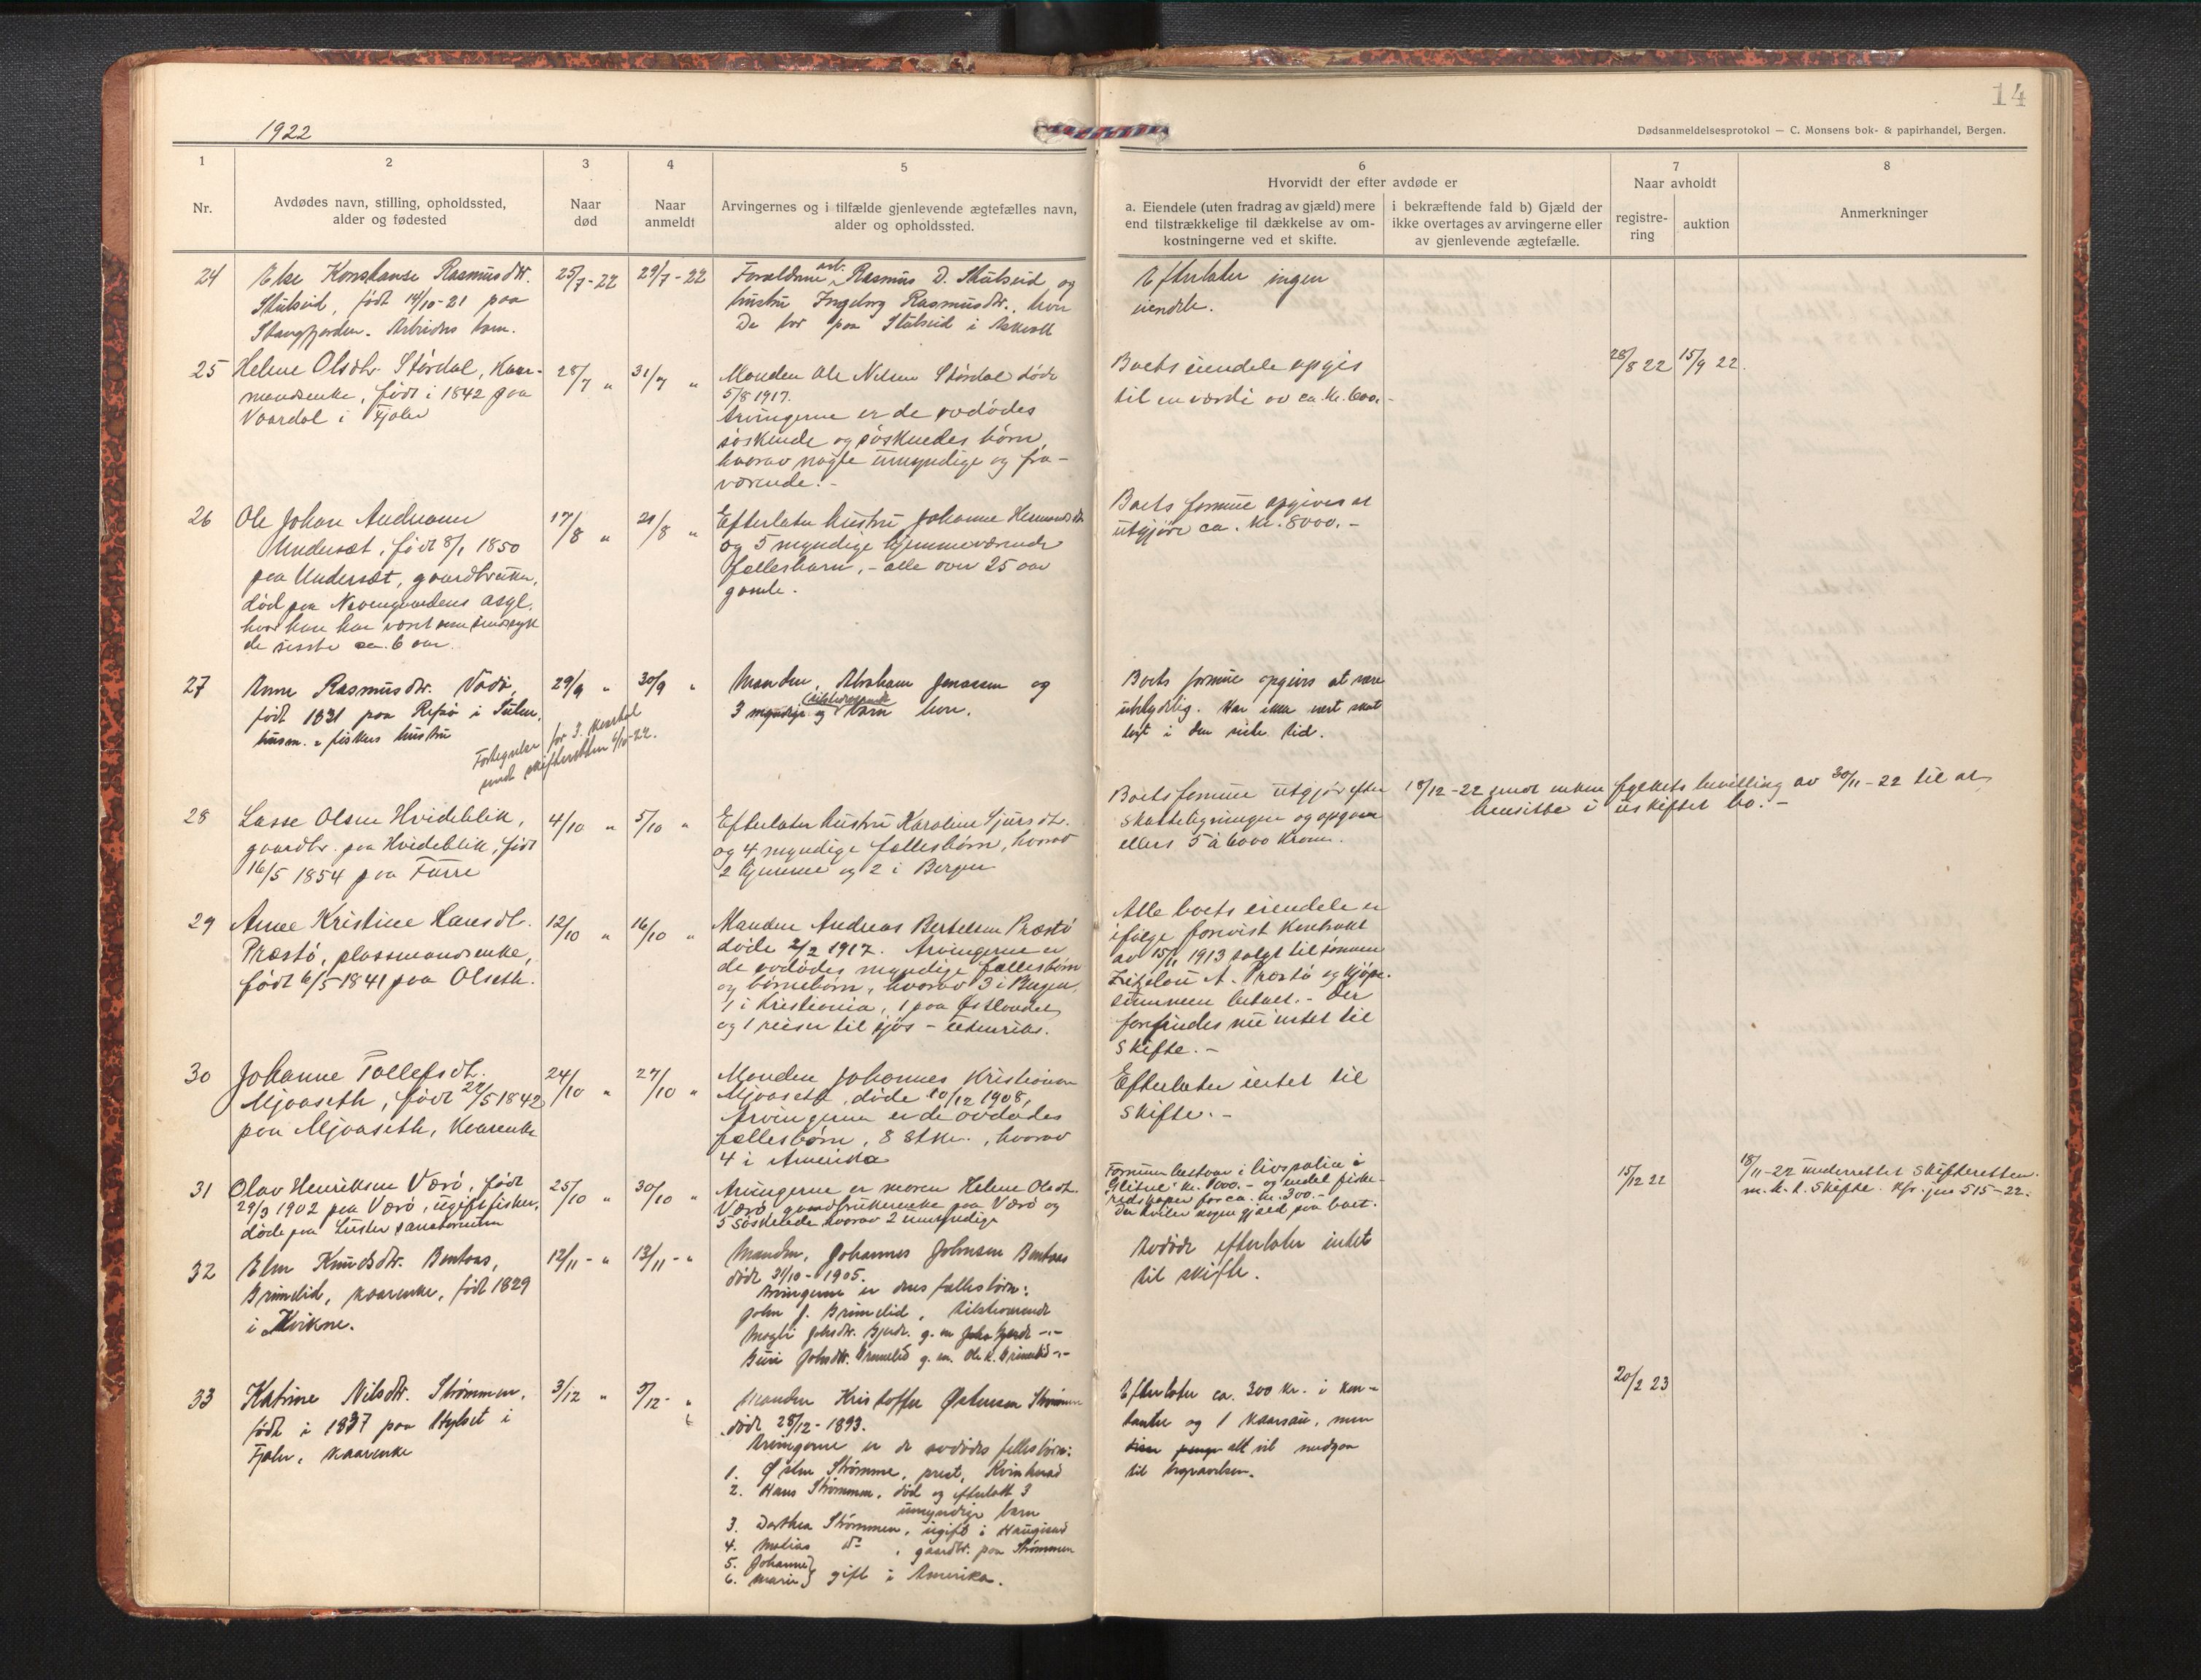 14
1922
Dødsanmeldelsesprotokol — C. Monsens bok- & papirhandel, Bergen.
1
Nr.
2
Avdødes navn, stilling, opholdssted,
alder og fødested
3
Naar
død
4
Naar
anmeldt
5
Arvingernes og i tilfælde gjenlevende ægtefælles navn,
alder og opholdssted.
6
Hvorvidt der efter avdøde er
a. Eiendele (uten fradrag av gjæld) mere
end tilstrækkelige til dækkelse av om-
kostningerne ved et skifte.
i bekræftende fald b) Gjæld der
ikke overtages av arvingerne eller
av gjenlevende ægtefælle.
7
Naar avholdt
registre-
ring
auktion
8
Anmerkninger
24
Else Konstanse Rasmusdtr.
Stubseid, født 14/10-21 paa
Stangfjorden. Arbeiders barn.
25/7-22
29/7-22
Forældrene arb. Rasmus D. Stubseid og
hustru Ingeborg Rasmusdtr.
De bor paa Stubseid i Askvoll
Efterlater ingen
eiendele.
25
Helene Olsdtr. Stórdal, Kaar-
mandsenke, født i 1842 paa
Vaardal i Fjaler
28/7 "
31/7 "
Manden Ole Nilsen Stórdal døde
5/8 1917.
Arvingerne er de avdødes
søskende og søskendes børn,
hvorav nogle umyndige og fra-
værende. -
Boets eiendele opgis
til en værdi av ca. kr. 600.-
28/8 22
15/9 22.
26
Ole Johan Andreassen
Undersæt, født 8/1 1850
paa Undersæt, gaardbruker,
død paa Neevengaardens asyl,
hvor han har været som sindssyk
de sisste ca. 6 aar.
17/8 "
21/8 "
Efterlater hustru Johanne
og 5 myndige hjemmeværende
fællesbarn, - alle over 25 aar
gamle.
Boets formue opgives at
utgjøre ca. kr. 8000. -
27
Anne Rasmusdtr. Vadø,
født 1831 paa Refsø i Sulen,
husm. & fiskers hustru
Fortegnelse for 3. kvartal
sendt skifteretten 6/10-22.
29/9 "
30/9 "
Manden, Abraham Jonassen og
3 myndige og tilstedeværende barn
Boets formue opgives at være
ubetydelig. Har ikke vært skat
lagt i den siste tid.
28
Lasse Olsen Hvideblik,
gaardbr. paa Hvideblik, født
16/5 1854 paa Furre
4/10 "
5/10 "
Efterlater hustru Karoline Sjursdtr.
og 4 myndige fællesbørn, hvorav
2 hjemme og 2 i Bergen
Boets formue utgjør efter
skatteligningen og opgave
ellers 5 à 6000 kroner.
18/12-22 sendt enken fylkets bevilling av 30/11-22 til at
hensitte i uskiftet bo. -
29
Anne Kristine Hansdtr.
Præstø, plassmandsenke,
født 6/5-1841 paa Olseth.
12/10 "
16/10 "
Manden Andreas Bertelsen Præstø
døde 2/2 1917. Arvingerne er
de avdødes myndige fællesbørn
og børnebørn, hvorav 3 i Bergen,
1 i Kristiania, 1 paa Østlandet
og 1 reiser til sjøs - utenriks.
Alle boets eiendele er
ifølge forevist kontrakt
av 15/11 1913 solgt til sønnen
A. Præstø og kjøpe-
summen betalt. - Der
forefindes nu intet til
skifte. -
30
Johanne Tollefsdtr.
Mjoaseth, født 27/5 1842
paa Mjoaseth, Kaarenke
24/10 "
27/10 "
Manden Johannes Kristiansen
Mjoaseth, døde 10/12 1908,
Arvingerne er de avdødes
fællesbørn, 8 stkr., hvorav
4 i Amerika
Efterlater intet til
skifte. -
31
Olav Henriksen Værø, født
29/3 1902 paa Værø, ugift fisker,
døde paa Luster sanatorium
25/10 "
30/10 "
Arvingerne er moren Helene Olsdtr.
Værø, gaardbrukerenke paa Værø og
5 søskende hvorav 2 umyndige
Formuen bestaar i livspolice i
"Glitne" kr. 1000. - og endel fiske-
redskaper for ca. kr. 300. -
Der hviler nogen gjæld paa boet.
15/12 22
18/11-22 underrettet skifteretten
m. h. t. skifte. Kfr. jnr 515-22.
32
Elen Knudsdtr. Bentaas,
Brimelid, kaarenke, født 1829
i Hvikne.
12/11 - "
13/11 - "
Manden, Johannes Johnsen Bentaas
døde 31/10-1905.
Arvingerne er deres fællesbørn:
John J. Brimelid, tilstedeværende
Magli Johsdtr. Gjerde. g. m. Johs Gjerde -"-
Guri Johsdtr. Brimelid g. m. Ole K. Brimelid -"-
Avdøde efterlater intet
til skifte.
33
Katrine Nilsdtr. Strømmen,
født i 1837 paa Hylset i
Fjaler, kaarenke
3/12 "
5/12 - "
Manden Kristoffer Østensen Strømmen
døde 28/12-1893.
Arvingerne er de avdødes fellesbørn:
1. Østen Strømme, prest, Kvinherad
2. Hans Strømmen, død og efterlatt 3
umyndige barn
3. Dorthea Strømmen, ugift i Haugesund
4. Matias do , gaardbr. paa Strømmen
5. Johanne }
6. Marie } gift i Amerika.
Efterlater ca. 300 kr. i kon-
tanter og 1 kaarsau, men
disse penge alt vil medgaa
til begravelsen.
20/2 23